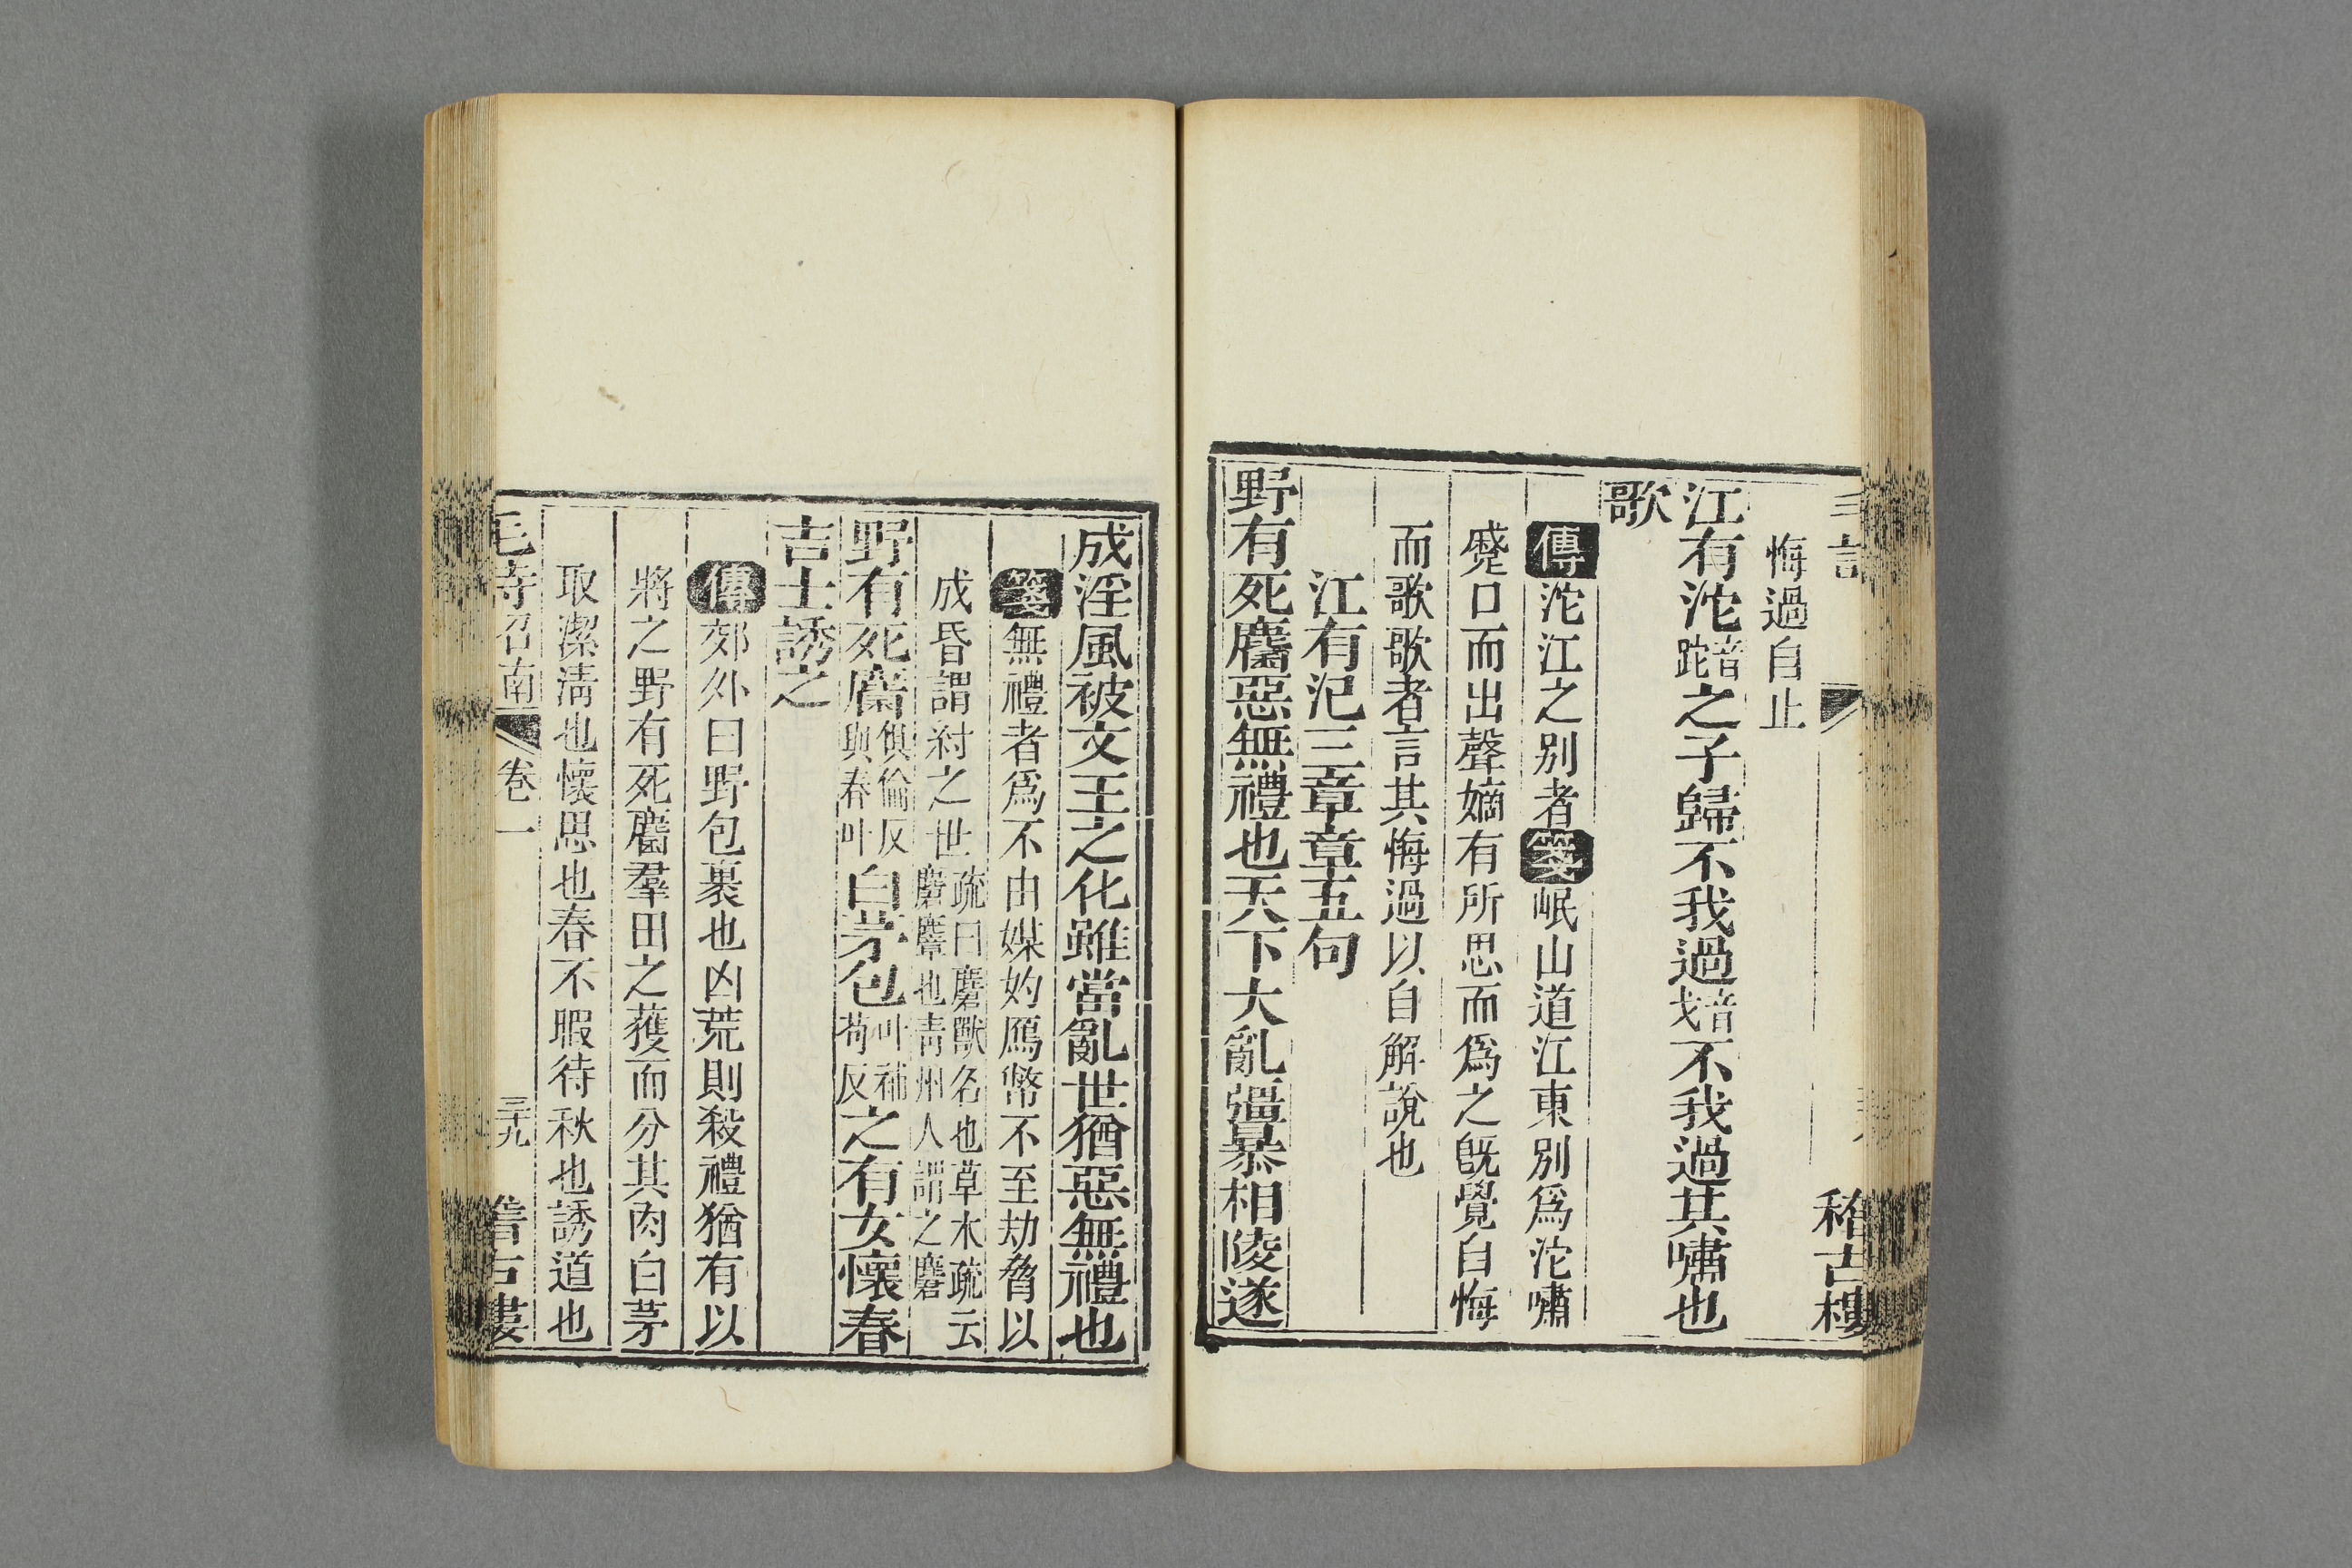 悔過自止
江有沱音跎之子歸不我過音戈不我過其嘯也
歌
傳沱江之别者箋岷山道江東別爲沱嘯
蹙口而出聲嫡有所思而爲之旣覺自悔
而歌歌者言其悔過以自解說也
江有汜三章章五句
野有死麕惡無禮也天下大亂彊暴相陵遂
稽古樓
成淫風被文王之化雖當亂世猶惡無禮也
箋無禮者爲不由媒妁鴈幣不至劫脅以
成昏謂紂之世疏曰麕獸名也草木疏云
麕麞也靑州人謂之麕
野有死麕俱倫反與春叶白茅包叶補苟反之有女懷春
吉士誘之
傳郊外曰野包裹也凶荒則殺禮猶有以
將之野有死麕羣田之獲而分其肉白茅
取潔淸也懷思也春不暇待秋也誘道也
毛詩召南 卷一 三十九 稽古樓